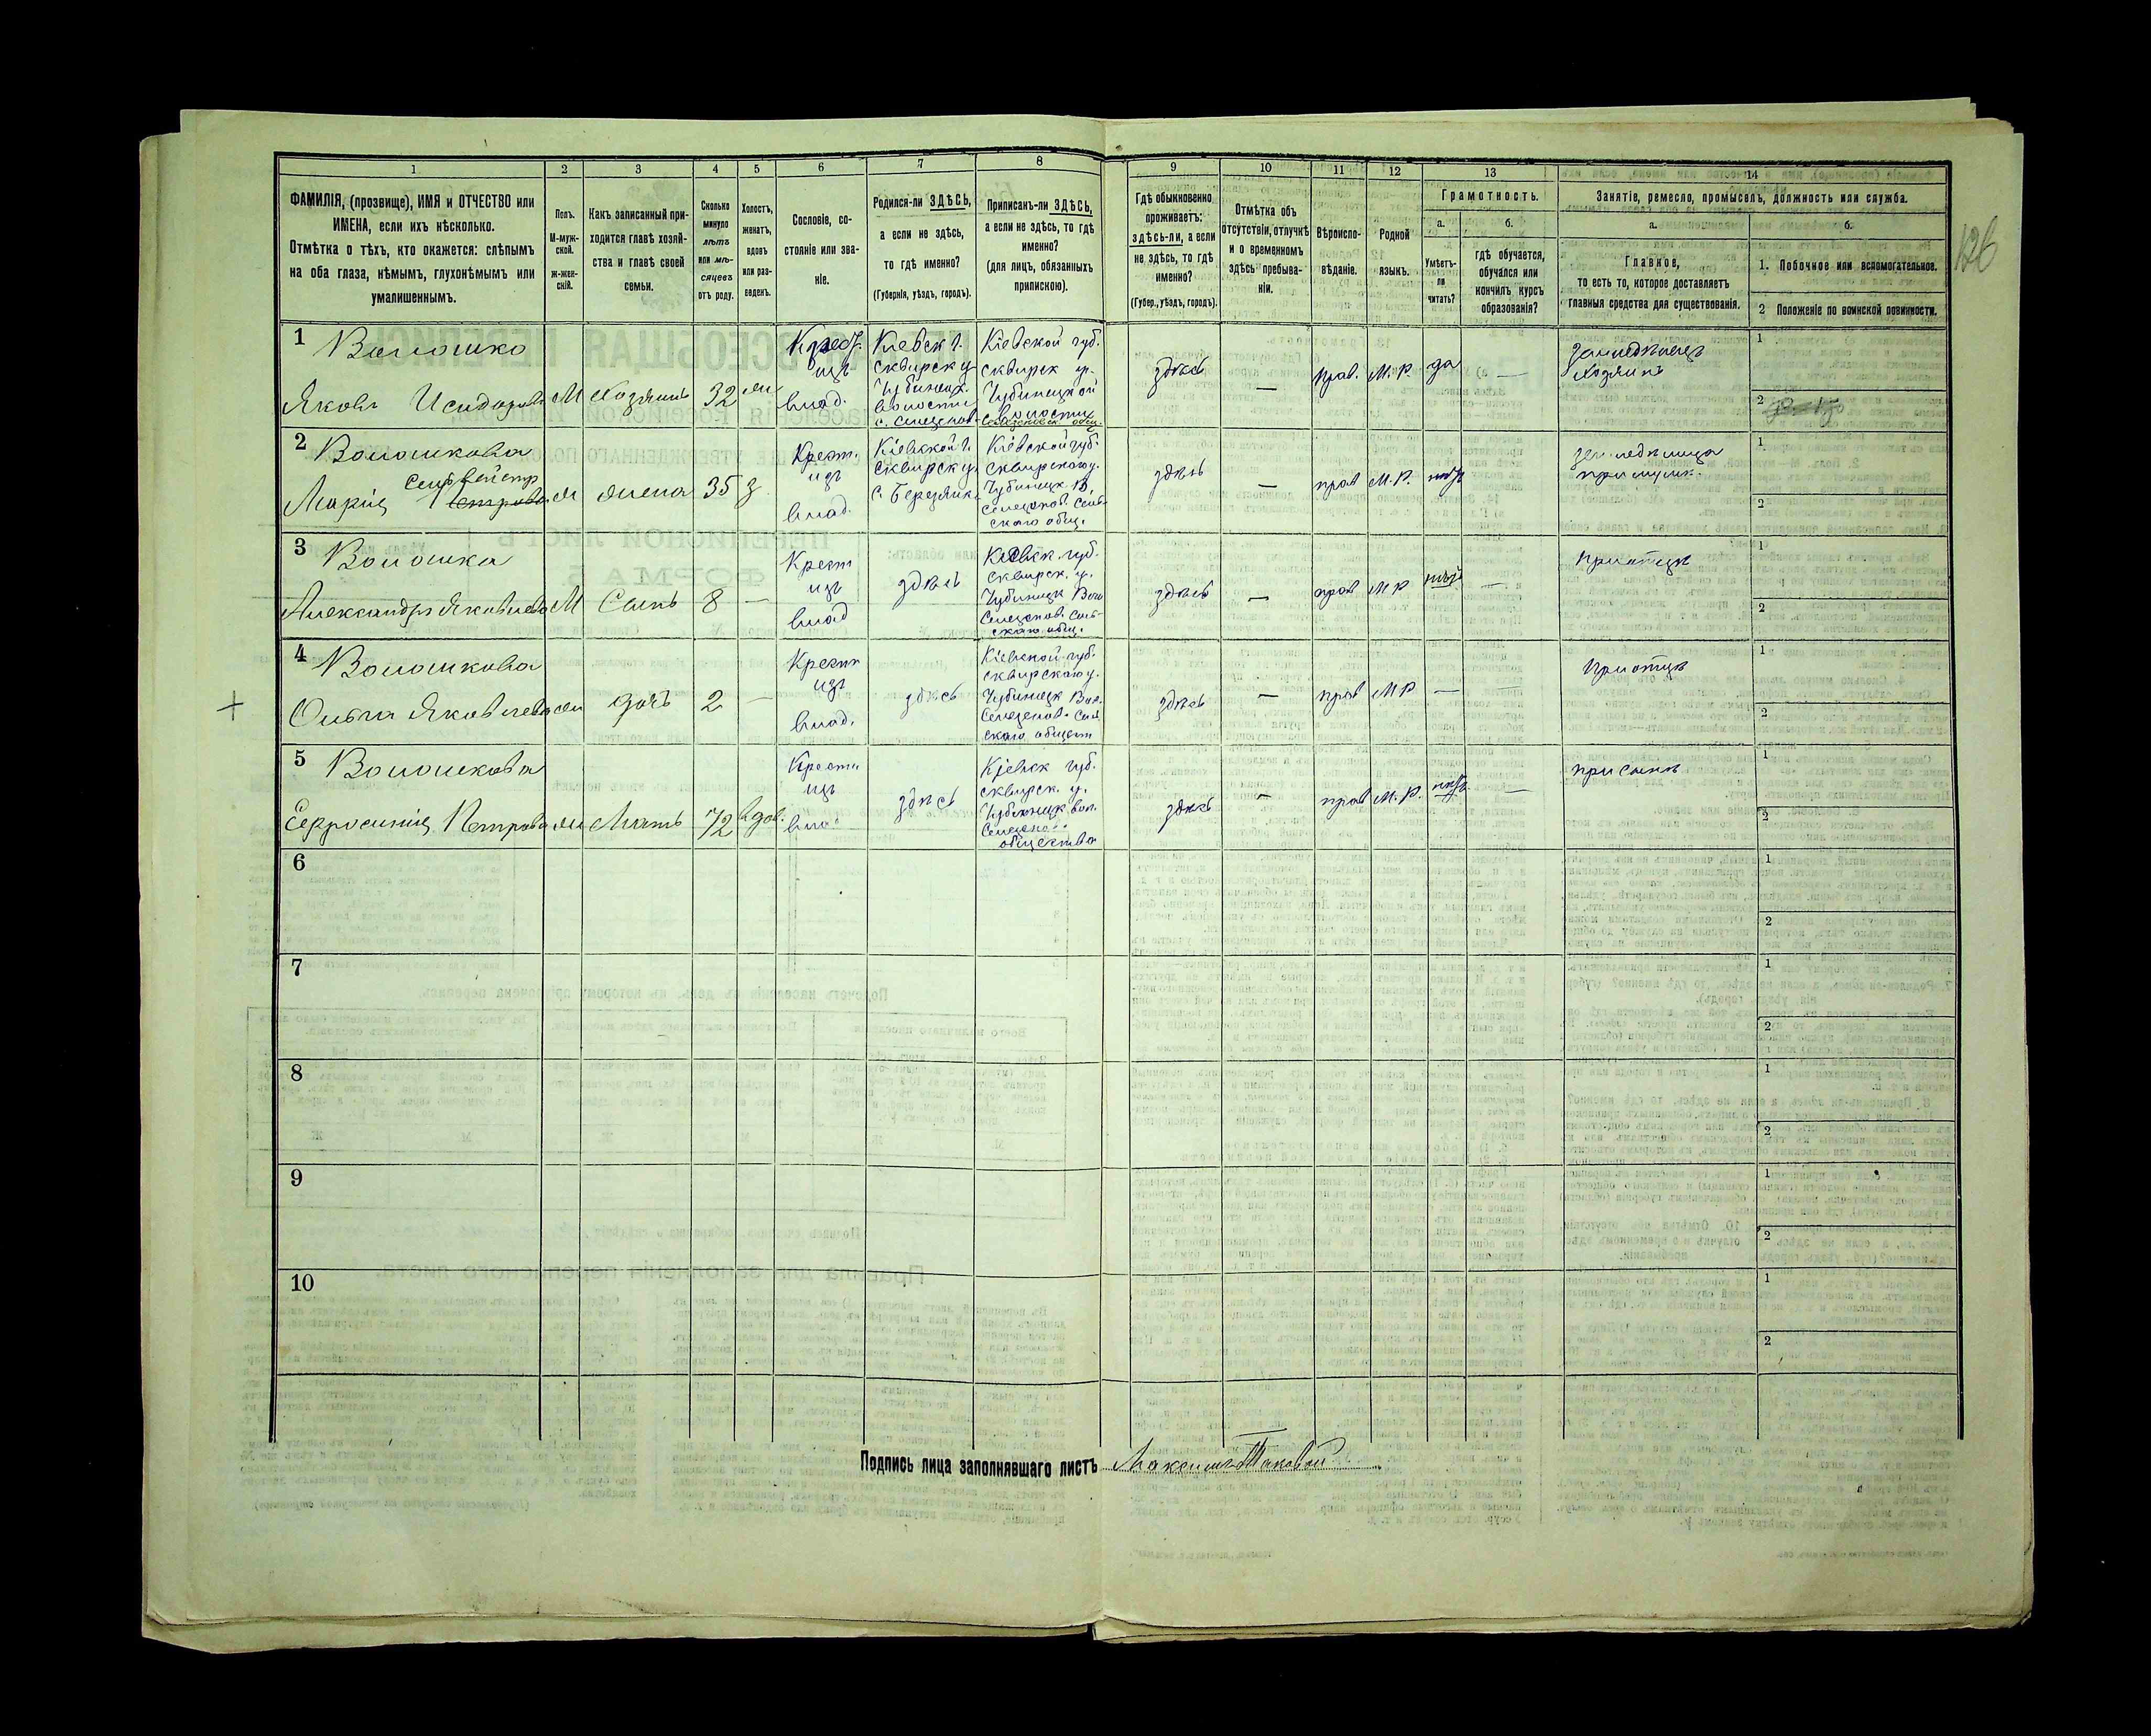 126
1 2 3 4 5 6 7 8 9 10 11 12 13 14
ФАМИЛІЯ, (прозвище), ИМЯ и ОТЧЕСТВО или
ИМЕНА, если ихъ нѣсколько.
Отмѣтка о тѣхъ, кто окажется: слѣпымъ
на оба глаза, нѣмымъ, глухонѣмымъ или
умалишеннымъ.
Полъ.
М-муж-
ской.
ж-жен-
скій.
Какъ записанный при-
ходится главѣ хозяй-
ства и главѣ своей
семьи.
Сколько
минуло
лѣтъ
или мѣ-
сяцевъ
отъ роду.
Холостъ,
женатъ,
вдовъ
или раз-
веденъ.
Сословіе, со-
стояніе или зва-
ніе.
Родился-ли ЗДѢСЬ,
а если не здѣсь,
то гдѣ именно?
(Губернія, уѣздъ, городъ).
Приписанъ-ли ЗДѢСЬ,
а если не здѣсь, то гдѣ
именно?
(для лицъ, обязанныхъ
припискою).
Гдѣ обыкновенно
проживаетъ:
здѣсь-ли, а если
не здѣсь, то гдѣ
именно?
(Губер., уѣздъ, городъ).
Отмѣтка объ
отсутствіи, отлучкѣ
и о временномъ
здѣсь пребыва-
ніи.
Вѣроиспо-
вѣданіе.
Родной
языкъ.
Грамотность.
а.
Умѣетъ-
ли
читать?
б.
гдѣ обучается,
обучался или
кончилъ курсъ
образованія?
Занятіе, ремесло, промыселъ, должность или служба.
а.
Главное,
то есть то, которое доставляетъ
главныя средства для существованія.
б.
1. Побочное или вспомогательное.
2 Положеніе по воинской повинности.
1 Волошко
Яковъ Исидоровъ
М
Хозяинъ
32
жн
Крест.
изъ
влад.
Кіевск г.
сквирск у
Чубинецк.
волости
с. Селезенов.
Кіевской губ.
сквирск у.
Чубинецкой
волости
здѣсь
—
прав.
М. Р.
да
—
земледѣлецъ
хозяинъ
1
2
2 Волошкова
Марія Петрова
ж
жена
35
з
Крест.
изъ
влад.
Кіевской г.
сквирск у.
с. Березянк.
Кіевской губ.
сквирскаго у.
Чубинецк. В.
Селезенов. Сель-
скаго общ.
здѣсь
—
прав
М. Р.
нѣтъ
земледѣлица
при мужѣ.
1
2
3 Волошко
Александръ Яковлевъ
М
Сынъ
8
—
Крест
изъ
влад
здѣсь
Кіевск губ.
сквирск. у.
Чубинецк Вол
Селезенов. Сель-
скаго общ.
здѣсь
—
прав
М Р
нѣтъ
—
При отцѣ
1
2
4 Волошкова
Ольга Яковлева
ж
дочь
2
—
Крест
изъ
влад.
здѣсь
Кіевской губ.
сквирскаго у.
Чубинецк Вол.
Селезенов. Сель
скаго общест
здѣсь
—
прав
М Р
—
—
При отцѣ
1
2
5 Волошкова
Евфросинія Петрова
ж
Мать
72
вдов.
Крестя
изъ
влад
здѣсь
Кіевск губ.
сквирск. у.
Чубинецк вол.
Селезено..
общества
здѣсь
—
прав
М. Р.
нѣтъ
—
при сынѣ
1
2
6
1
2
7
1
2
8
1
2
9
1
2
10
1
2
Подпись лица заполнявшаго листъ